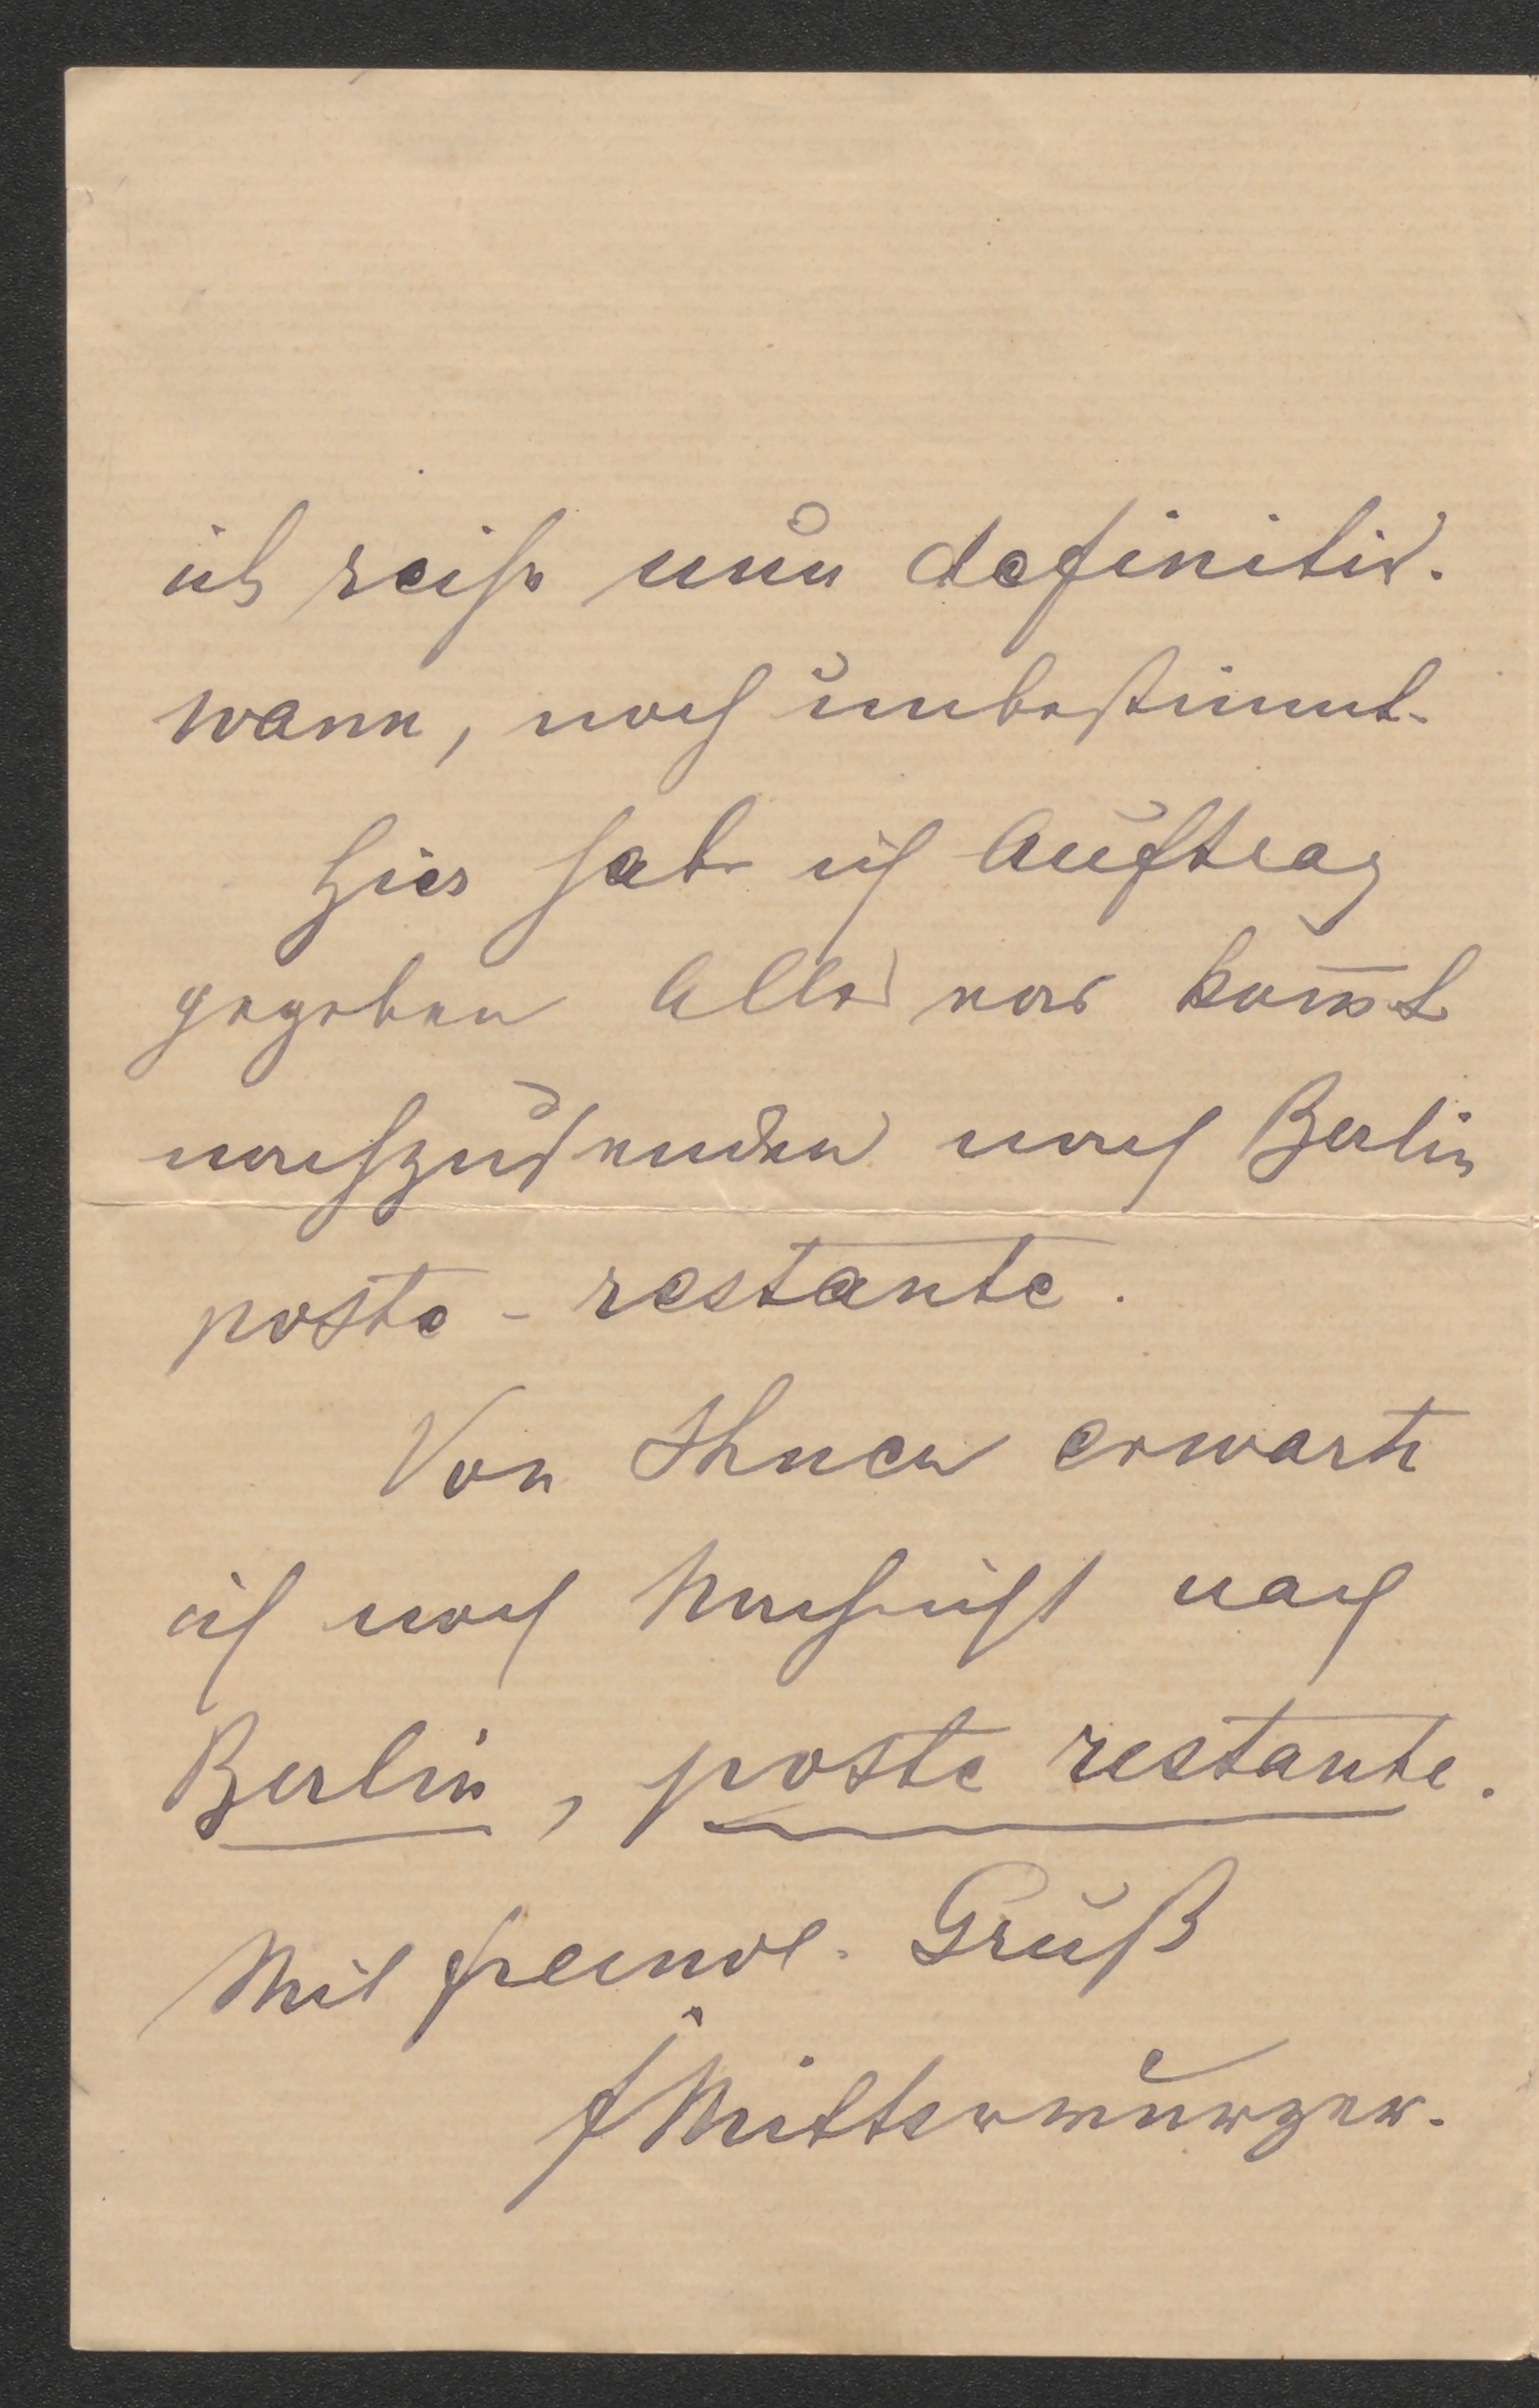 ich reise nun definitiv.
wann, noch unbestimmt.
Hier habe ich Auftrag
gegeben Alles was kom̄t
nachzusenden nach Berlin
poste-restante.
Von Ihnen erwarte
ich noch Nachricht nach
Berlin, poste restante.
Mit freundl. Gruß
F Mitterwurzer.